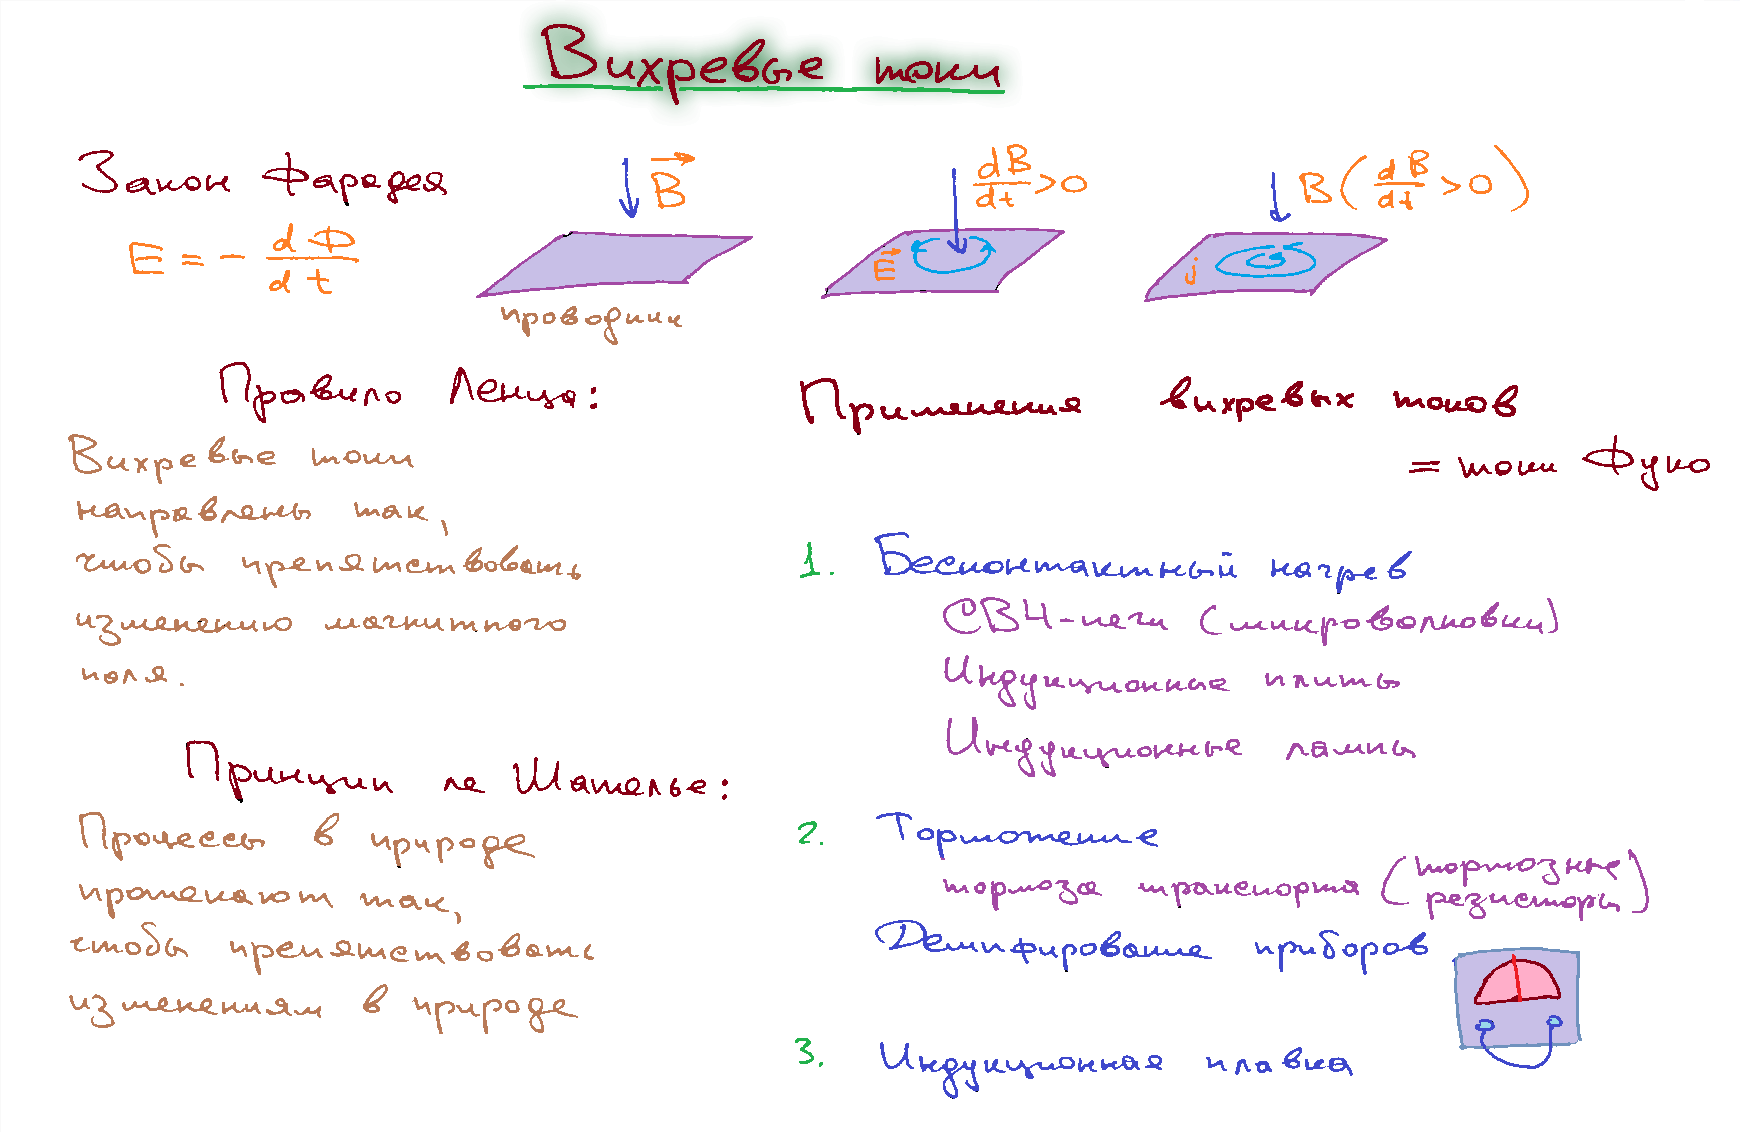 Вихревые токи
Закон Фарадея
E = - dФ/dt
B
dB/dt > 0
B (dB/dt > 0)
E
j
проводник
Правило Ленца:
Вихревые токи
направлены так,
чтобы препятствовать
изменению магнитного
поля.
Принцип ле Шателье:
Процессы в природе
протекают так,
чтобы препятствовать
изменениям в природе
Применения вихревых токов
= токи Фуко
1. Бесконтактный нагрев
СВЧ-печи (микроволновки)
Индукционные плиты
Индукционные лампы
2. Торможение
тормоза транспорта (тормозные
резисторы)
Демпфирование приборов
3. Индукционная плавка